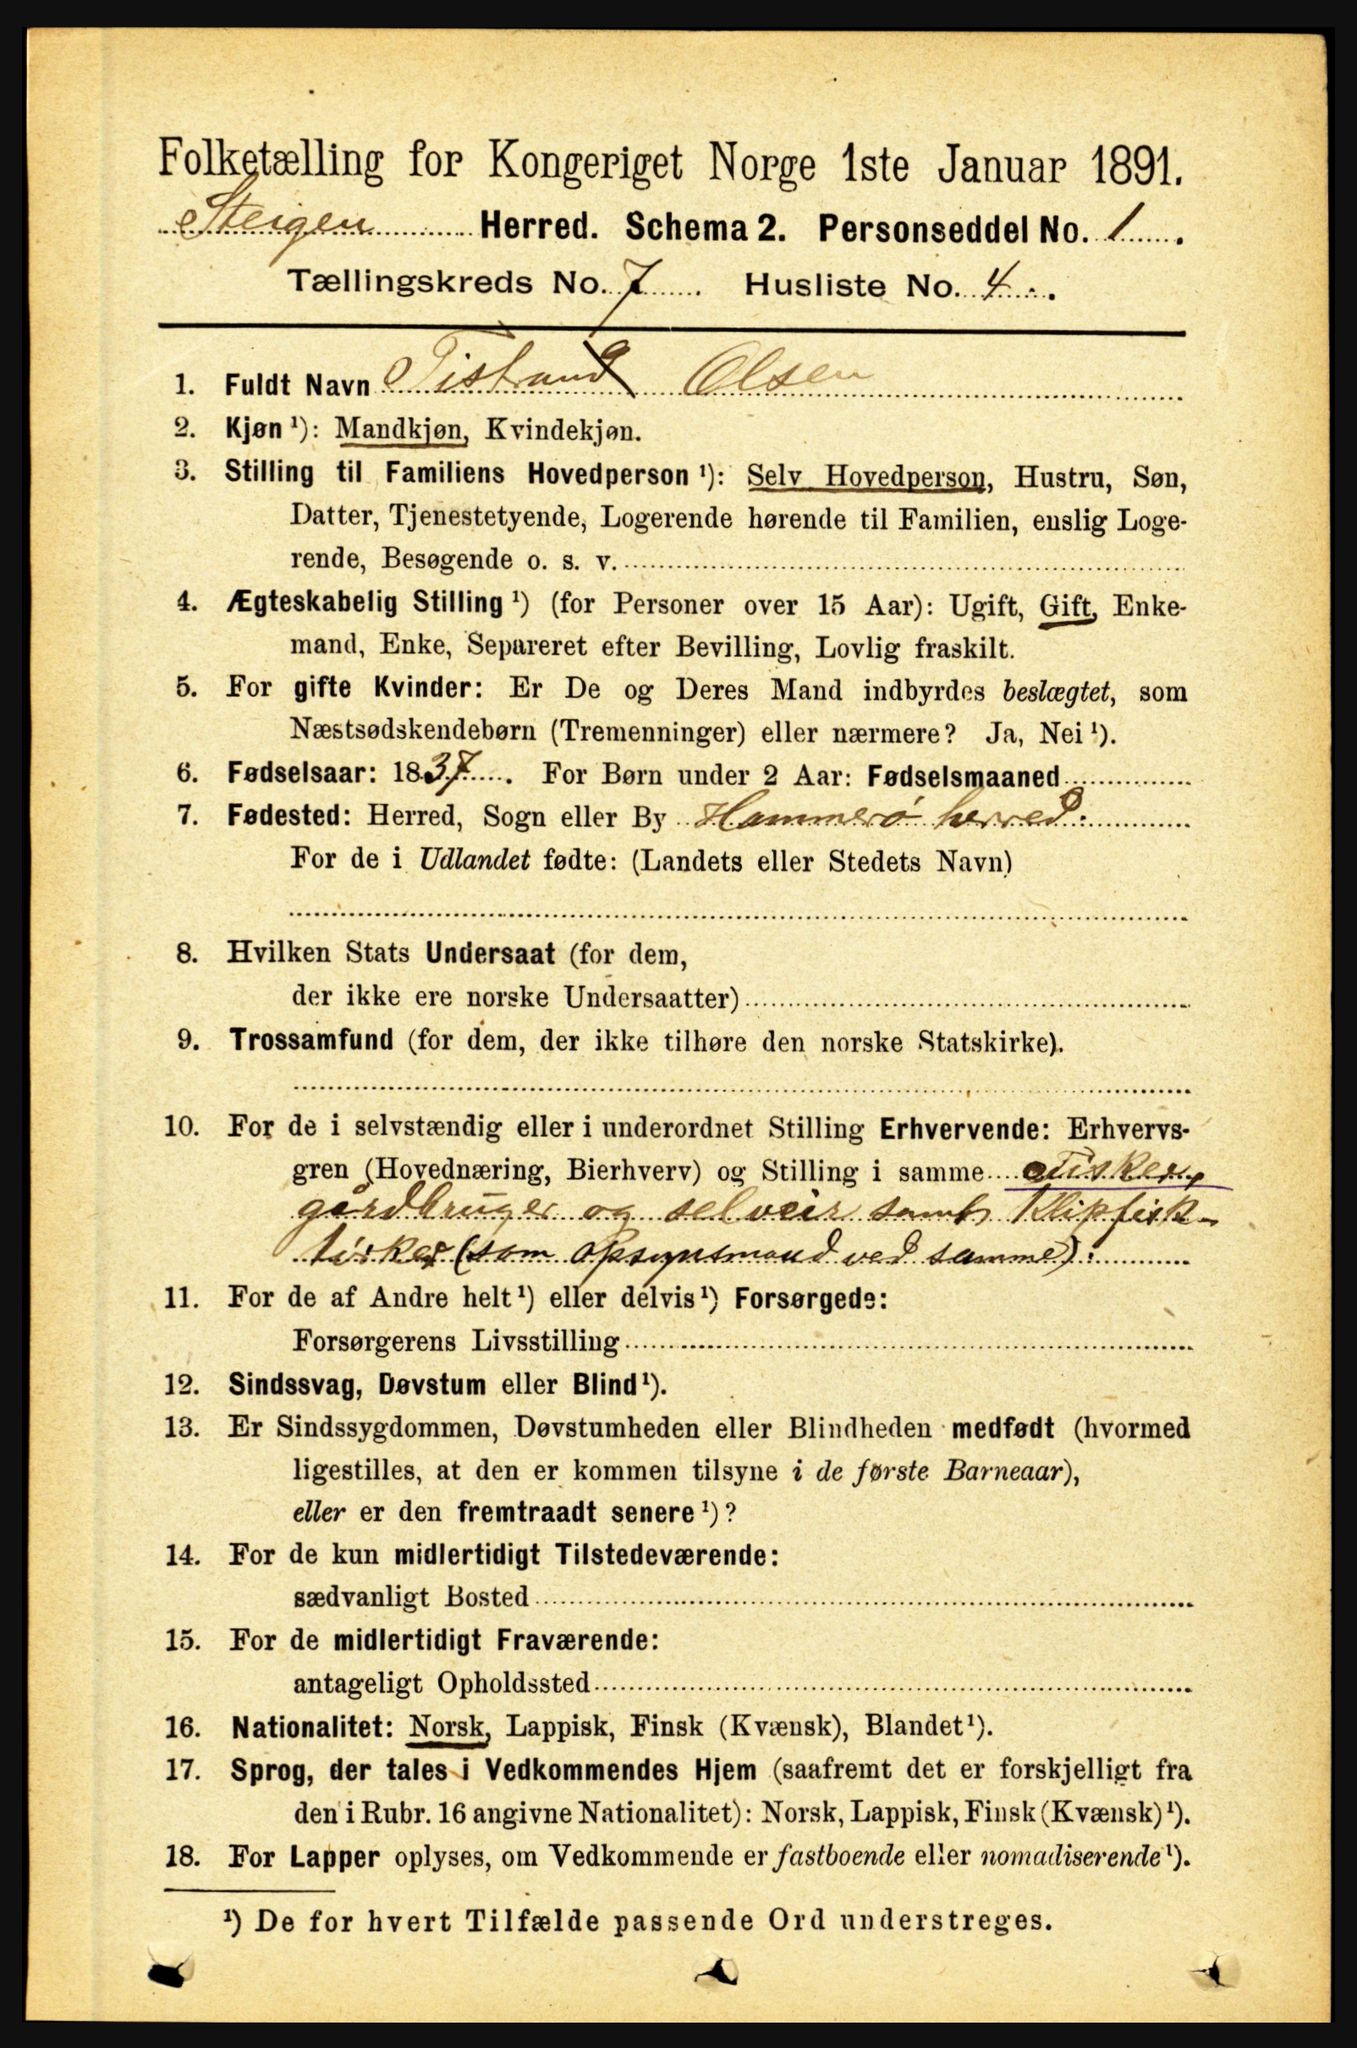 Folketælling for Kongeriget Norge 1ste Januar 1891.
Steigen Herred. Schema 2. Personseddel No. 1.
Tællingskreds No. 7. Husliste No. 4.
1. Fuldt Navn Tistrand Olsen
2. Kjøn ¹): Mandkjøn, Kvindekjøn.
3. Stilling til Familiens Hovedperson ¹): Selv Hovedperson, Hustru, Søn,
Datter, Tjenestetyende, Logerende hørende til Familien, enslig Loge-
rende, Besøgende o. s. v.
4. Ægteskabelig Stilling ¹) (for Personer over 15 Aar): Ugift, Gift, Enke-
mand, Enke, Separeret efter Bevilling, Lovlig fraskilt.
5. For gifte Kvinder: Er De og Deres Mand indbyrdes beslægtet, som
Næstsødskendebørn (Tremenninger) eller nærmere? Ja, Nei ¹).
6. Fødselsaar: 1837. For Børn under 2 Aar: Fødselsmaaned
7. Fødested: Herred, Sogn eller By Hammerø herred.
For de i Udlandet fødte: (Landets eller Stedets Navn)
8. Hvilken Stats Undersaat (for dem,
der ikke ere norske Undersaatter)
9. Trossamfund (for dem, der ikke tilhøre den norske Statskirke).
10. For de i selvstændig eller i underordnet Stilling Erhvervende: Erhvervs-
gren (Hovednæring, Bierhverv) og Stilling i samme Fisker,
gårdbruger og selveier samt Klipfisk-
tirker (som opsynsmand ved samme).
11. For de af Andre helt ¹) eller delvis ¹) Forsørgede:
Forsørgerens Livsstilling
12. Sindssvag, Døvstum eller Blind ¹).
13. Er Sindssygdommen, Døvstumheden eller Blindheden medfødt (hvormed
ligestilles, at den er kommen tilsyne i de første Barneaar),
eller er den fremtraadt senere ¹)?
14. For de kun midlertidigt Tilstedeværende:
sædvanligt Bosted
15. For de midlertidigt Fraværende:
antageligt Opholdssted
16. Nationalitet: Norsk, Lappisk, Finsk (Kvænsk), Blandet ¹).
17. Sprog, der tales i Vedkommendes Hjem (saafremt det er forskjelligt fra
den i Rubr. 16 angivne Nationalitet): Norsk, Lappisk, Finsk (Kvænsk) ¹).
18. For Lapper oplyses, om Vedkommende er fastboende eller nomadiserende ¹).
¹) De for hvert Tilfælde passende Ord understreges.